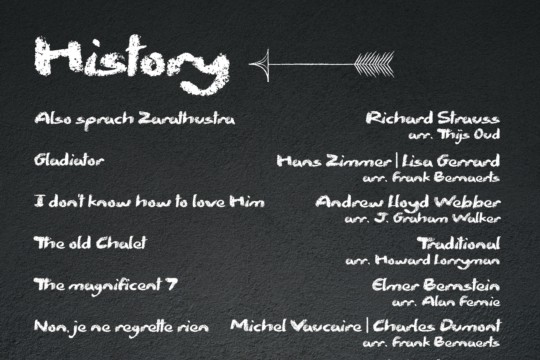 History
Also sprach Zarathustra Richard Strauss
arr. Thijs Oud
Gladiator Hans Zimmer | Lisa Gerrard
arr. Frank Bernaerts
I don't know how to love Him Andrew Lloyd Webber
arr. J. Graham Walker
The old Chalet Traditional
arr. Howard Lorryman
The magnificent 7 Elmer Bernstein
arr. Alan Fernie
Non, je ne regrette rien Michel Vaucaire | Charles Dumont
arr. Frank Bernaerts